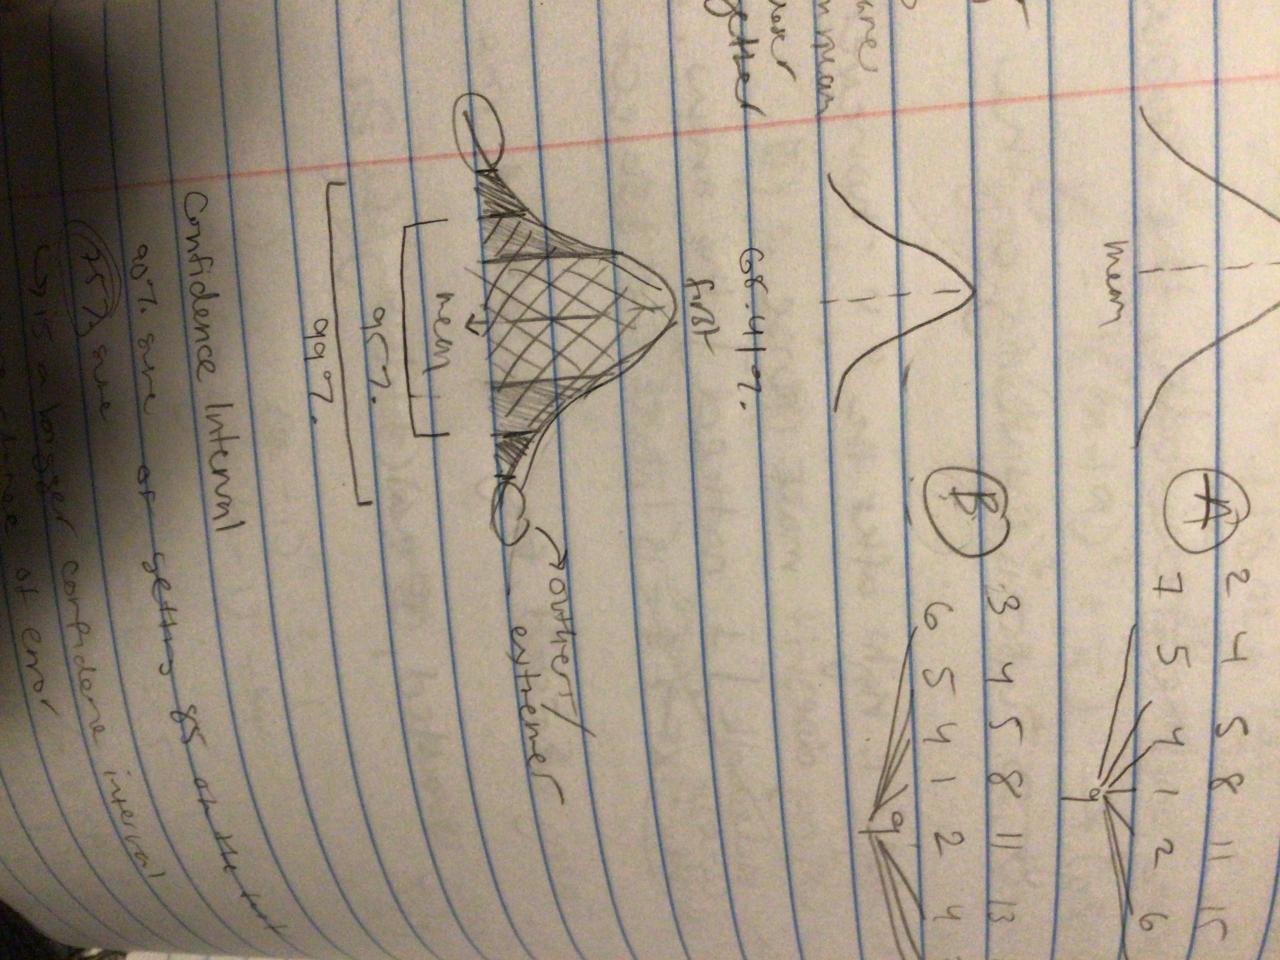 A 2 4 5 8 11 15
7 5 4 1 2 6
9
mean
B 3 4 5 8 11 13
6 5 4 1 2 4
9
mean
together
68.41%.
first
mean
outlier/
extreme
95%.
99%.
Confidence Interval
90% sure of getting 85 on the test
75% sure
is a larger confidence interval
of error